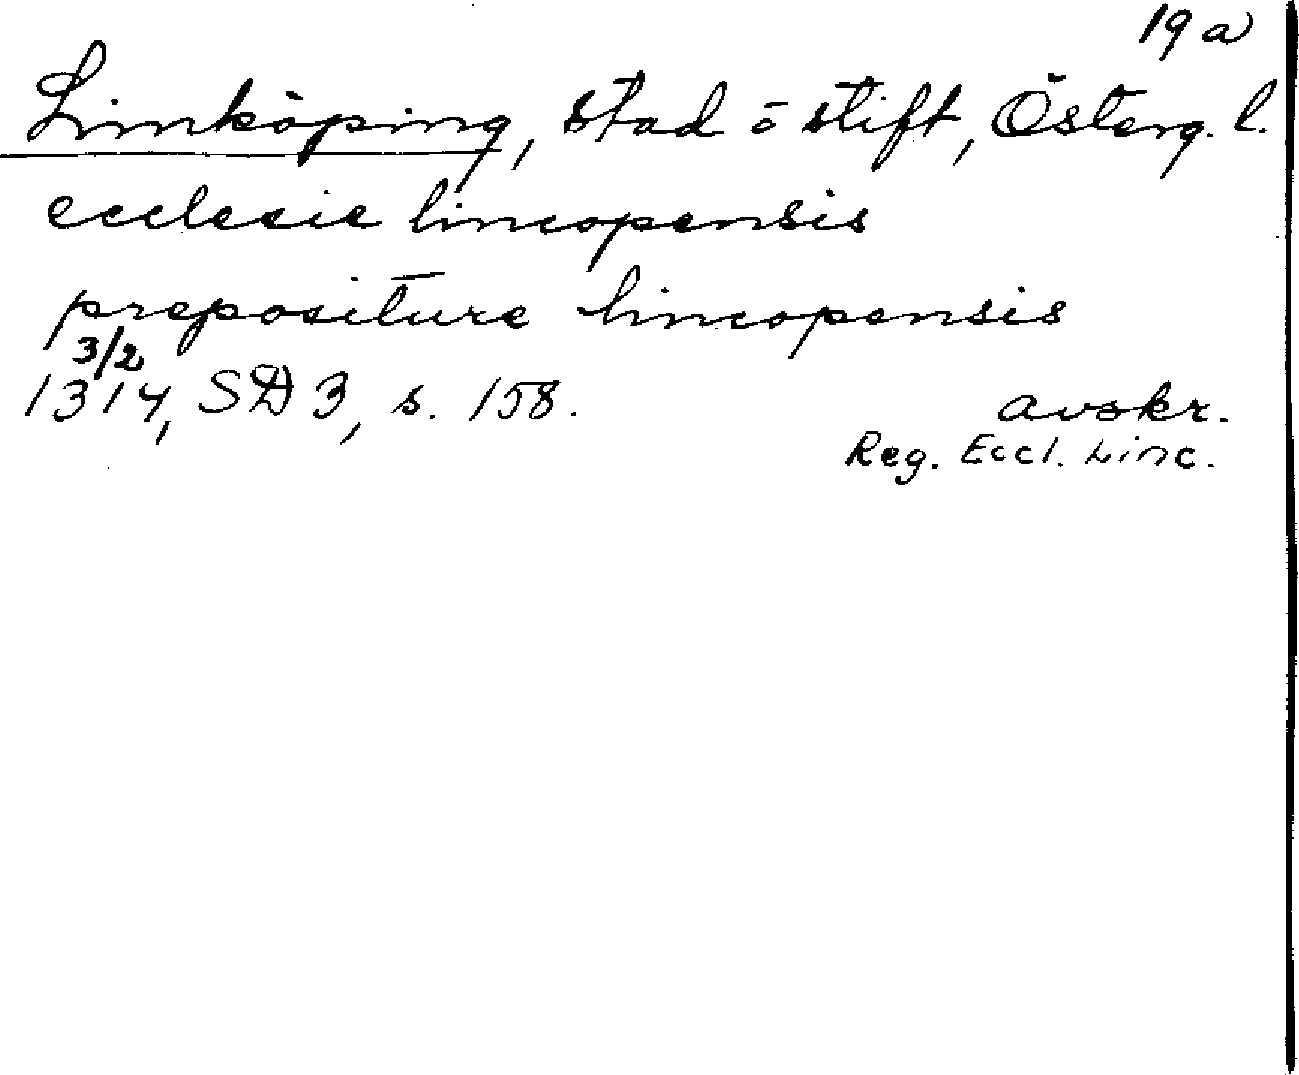 19 a
Linköping, stad o stift, Österg. l.
ecclesie lincopensis
prepositure lincopensis
3/2
1314, SD 3, s. 158.
avskr.
Reg. Eccl. Linc.